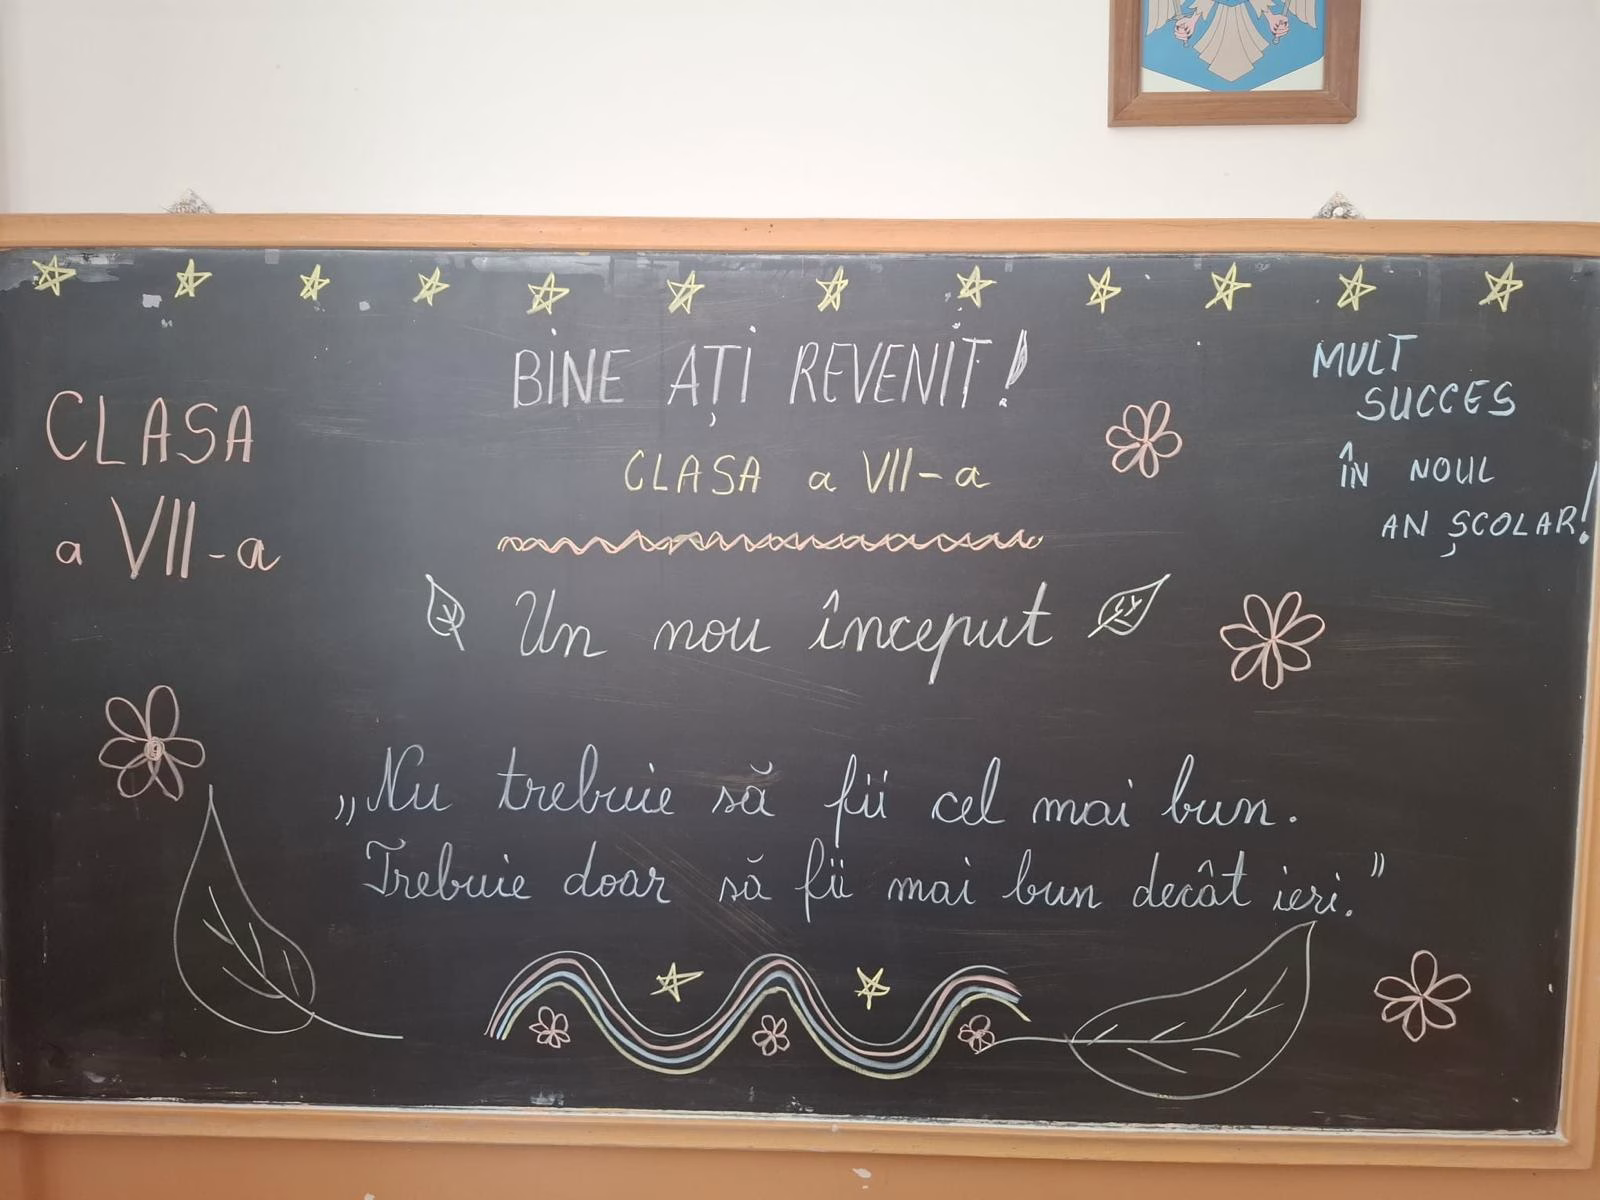 BINE AȚI REVENIT!
CLASA a VII-a
CLASA
a VII-a
MULT
SUCCES
ÎN NOUL
AN ȘCOLAR!
Un nou început
„Nu trebuie să fii cel mai bun.
Trebuie doar să fii mai bun decât ieri.”